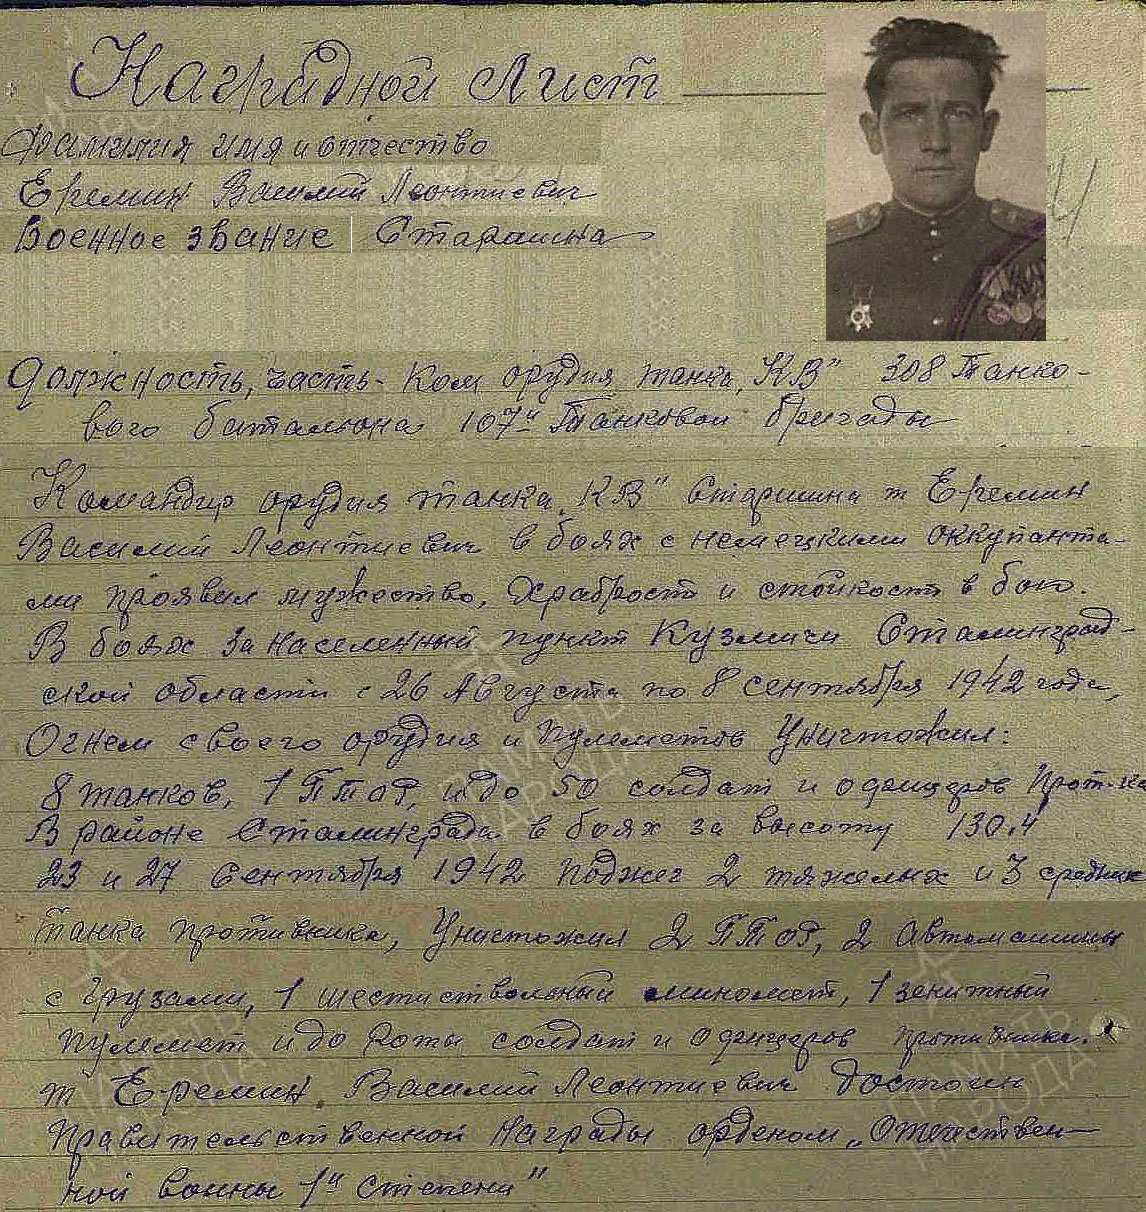 Наградной Лист
Фамилия имя и отчество
Еремин Василий Леонтиевич
Военное звание Старшина
Должность, часть - Ком орудия танка „КВ" 308 Танко-
вого батальона 107й Танковой бригады
Командир орудия танка „КВ" Старшина т Еремин
Василий Леонтиевич в боях с немецкими оккупанта-
ми проявил мужество, храброст и стойкост в бою.
В боях за населенный пункт Кузмичи Сталинград-
ской области с 26 Августа по 8 сентября 1942 года,
Огнем своего орудия и пулеметов Уничтожил:
8 танков, 1 ПТОР, и до 50 солдат и офицеров
В районе Сталинграда в боях за высоту 130,4
23 и 27 Сентября 1942 поджег 2 тяжелых и 3 средних
танка противника, Уничтожил 2 ПТОР, 2 Автомашины
с грузами, 1 шестиствольный миномет, 1 зенитный
пулемет и до Роты солдат и офицеров противника.
т Еремин Василий Леонтиевич Достоин
Правительственной Награды орденом „Отечествен-
ной войны 1й степени"
ПАМЯТЬ
НАРОДА
ПАМЯТЬ
НАРОДА
ПАМЯТЬ
НАРОДА